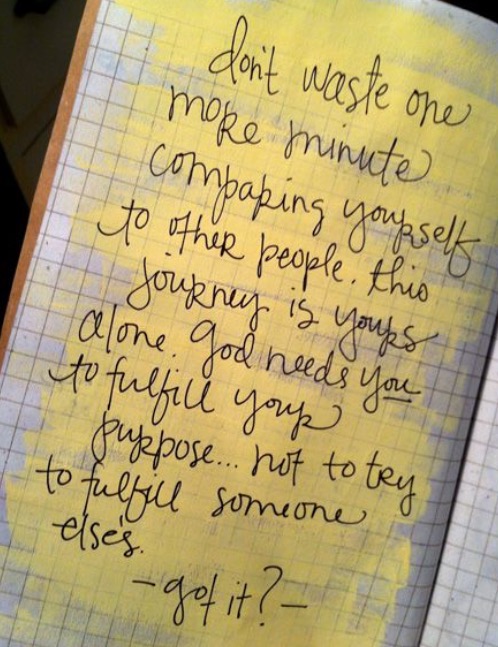 don't waste one
more minute
comparing yourself
to other people. this
journey is yours
alone. God needs you
to fulfill your
purpose... not to try
to fulfill someone
else's.
- got it? -